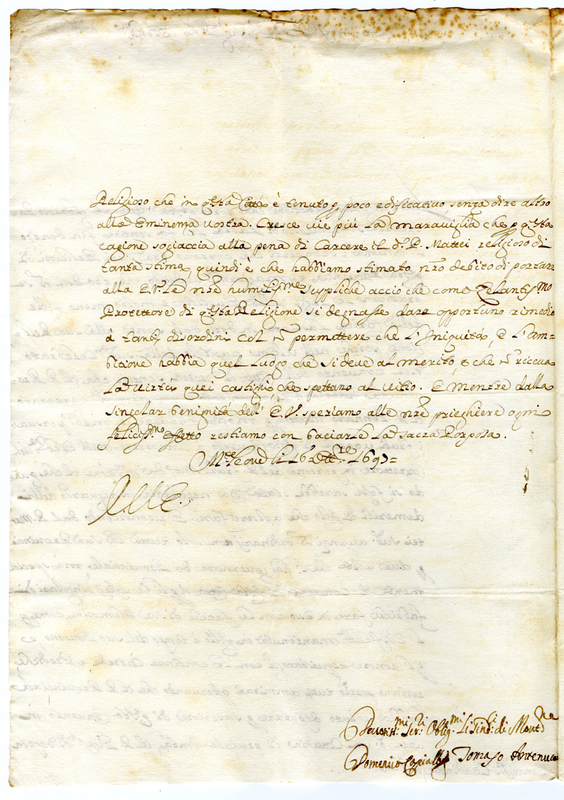 Religioso, che in qsta Città è tenuto p poco edificativo senza dire altro
alla Eminenza vostra. Cresce vie più la maraviglia che p qsta
cagione sogiaccia alla pena di Carcere il d. P. Mattei religioso di
tanta stima, quindi è che habbiamo stimato nro debito di portare
alla E. V. le nre humilme suppliche acciò che come Zelantmo
Protettore di qsta Religione si degnasse dare opportuno rimedio
à tanti disordini col n permettere che l'Iniquità, e l'am-
bitione habbia quel luogo che si deve al merito, e che n riceva
la virtù quei castighi che spettano al vitio. E mentre dalla
singolar benignità dell' E. V. speriamo alle nre prieghiere ogni
felicmo effetto restiamo con baciarle la sacra Porpora.
li 16 1697
Devotmi Seri Obligmi li Sindi di
Domenico Tomaso